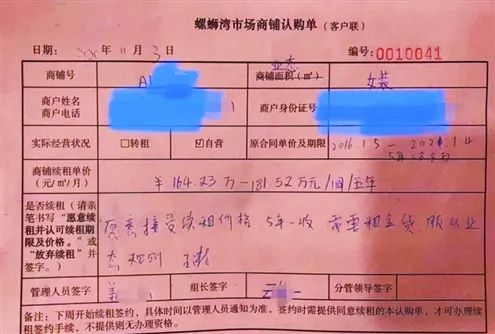 螺蛳湾市场商铺认购单（客户联）
日期： 年 11 月 3 日 编号：0010041
商铺号 A1 业态 商铺面积（㎡） 女装
商户姓名 商户身份证号
商户电话
实际经营状况 □转租 ☑自营 原合同单价及期限 2016.1.5 —
商铺续租单价
（元/㎡/月） ¥164.23万—181.52万元/间/五年
是否续租（请亲
笔书写“愿意续
租并认可续租期
限及价格。”或
“放弃续租”并
签字。）
愿意接受续租价格 5年一收 需要租金贷 服从业
态规划
管理人员签字 组长签字 分管领导签字
备注：下周开始续租签约，具体时间以管理人员通知为准，签约时需提供同意续租的本认购单，才可办理续
租签约手续，不提供则无办理资格。